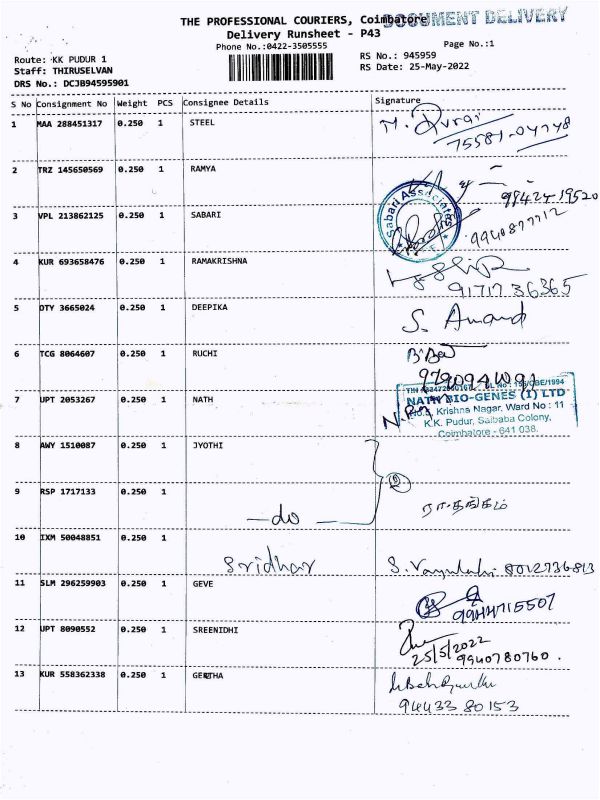 DOCUMENT DELIVERY
THE PROFESSIONAL COURIERS, Coimbatore
Delivery Runsheet - P43
Phone No.:0422-3505555
Page No.:1
Route: KK PUDUR 1
RS No.: 945959
Staff: THIRUSELVAN
RS Date: 25-May-2022
DRS No.: DCJB94595901
S No Consignment No Weight PCS Consignee Details Signature
1 MAA 288451317 0.250 1 STEEL
75581-04748
2 TRZ 145650569 0.250 1 RAMYA
98424-19520
Sabari Associates
3 VPL 213862125 0.250 1 SABARI
9940877712
4 KUR 693658476 0.250 1 RAMAKRISHNA
9171736365
5 DTY 3665024 0.250 1 DEEPIKA
S. Anand
6 TCG 8064607 0.250 1 RUCHI
7 UPT 2053267 0.250 1 NATH
NATH BIO-GENES (I) LTD
Krishna Nagar, Ward No : 11
K.K. Pudur, Saibaba Colony,
Coimbatore - 641 038.
8 AWY 1510087 0.250 1 JYOTHI
9 RSP 1717133 0.250 1
— do —
ரா.தங்கம்
10 IXM 50048851 0.250 1
Sridhar
8012736813
11 SLM 296259903 0.250 1 GEVE
9944715507
12 UPT 8090552 0.250 1 SREENIDHI
25/5/2022
9940780760.
13 KUR 558362338 0.250 1
94433 80153